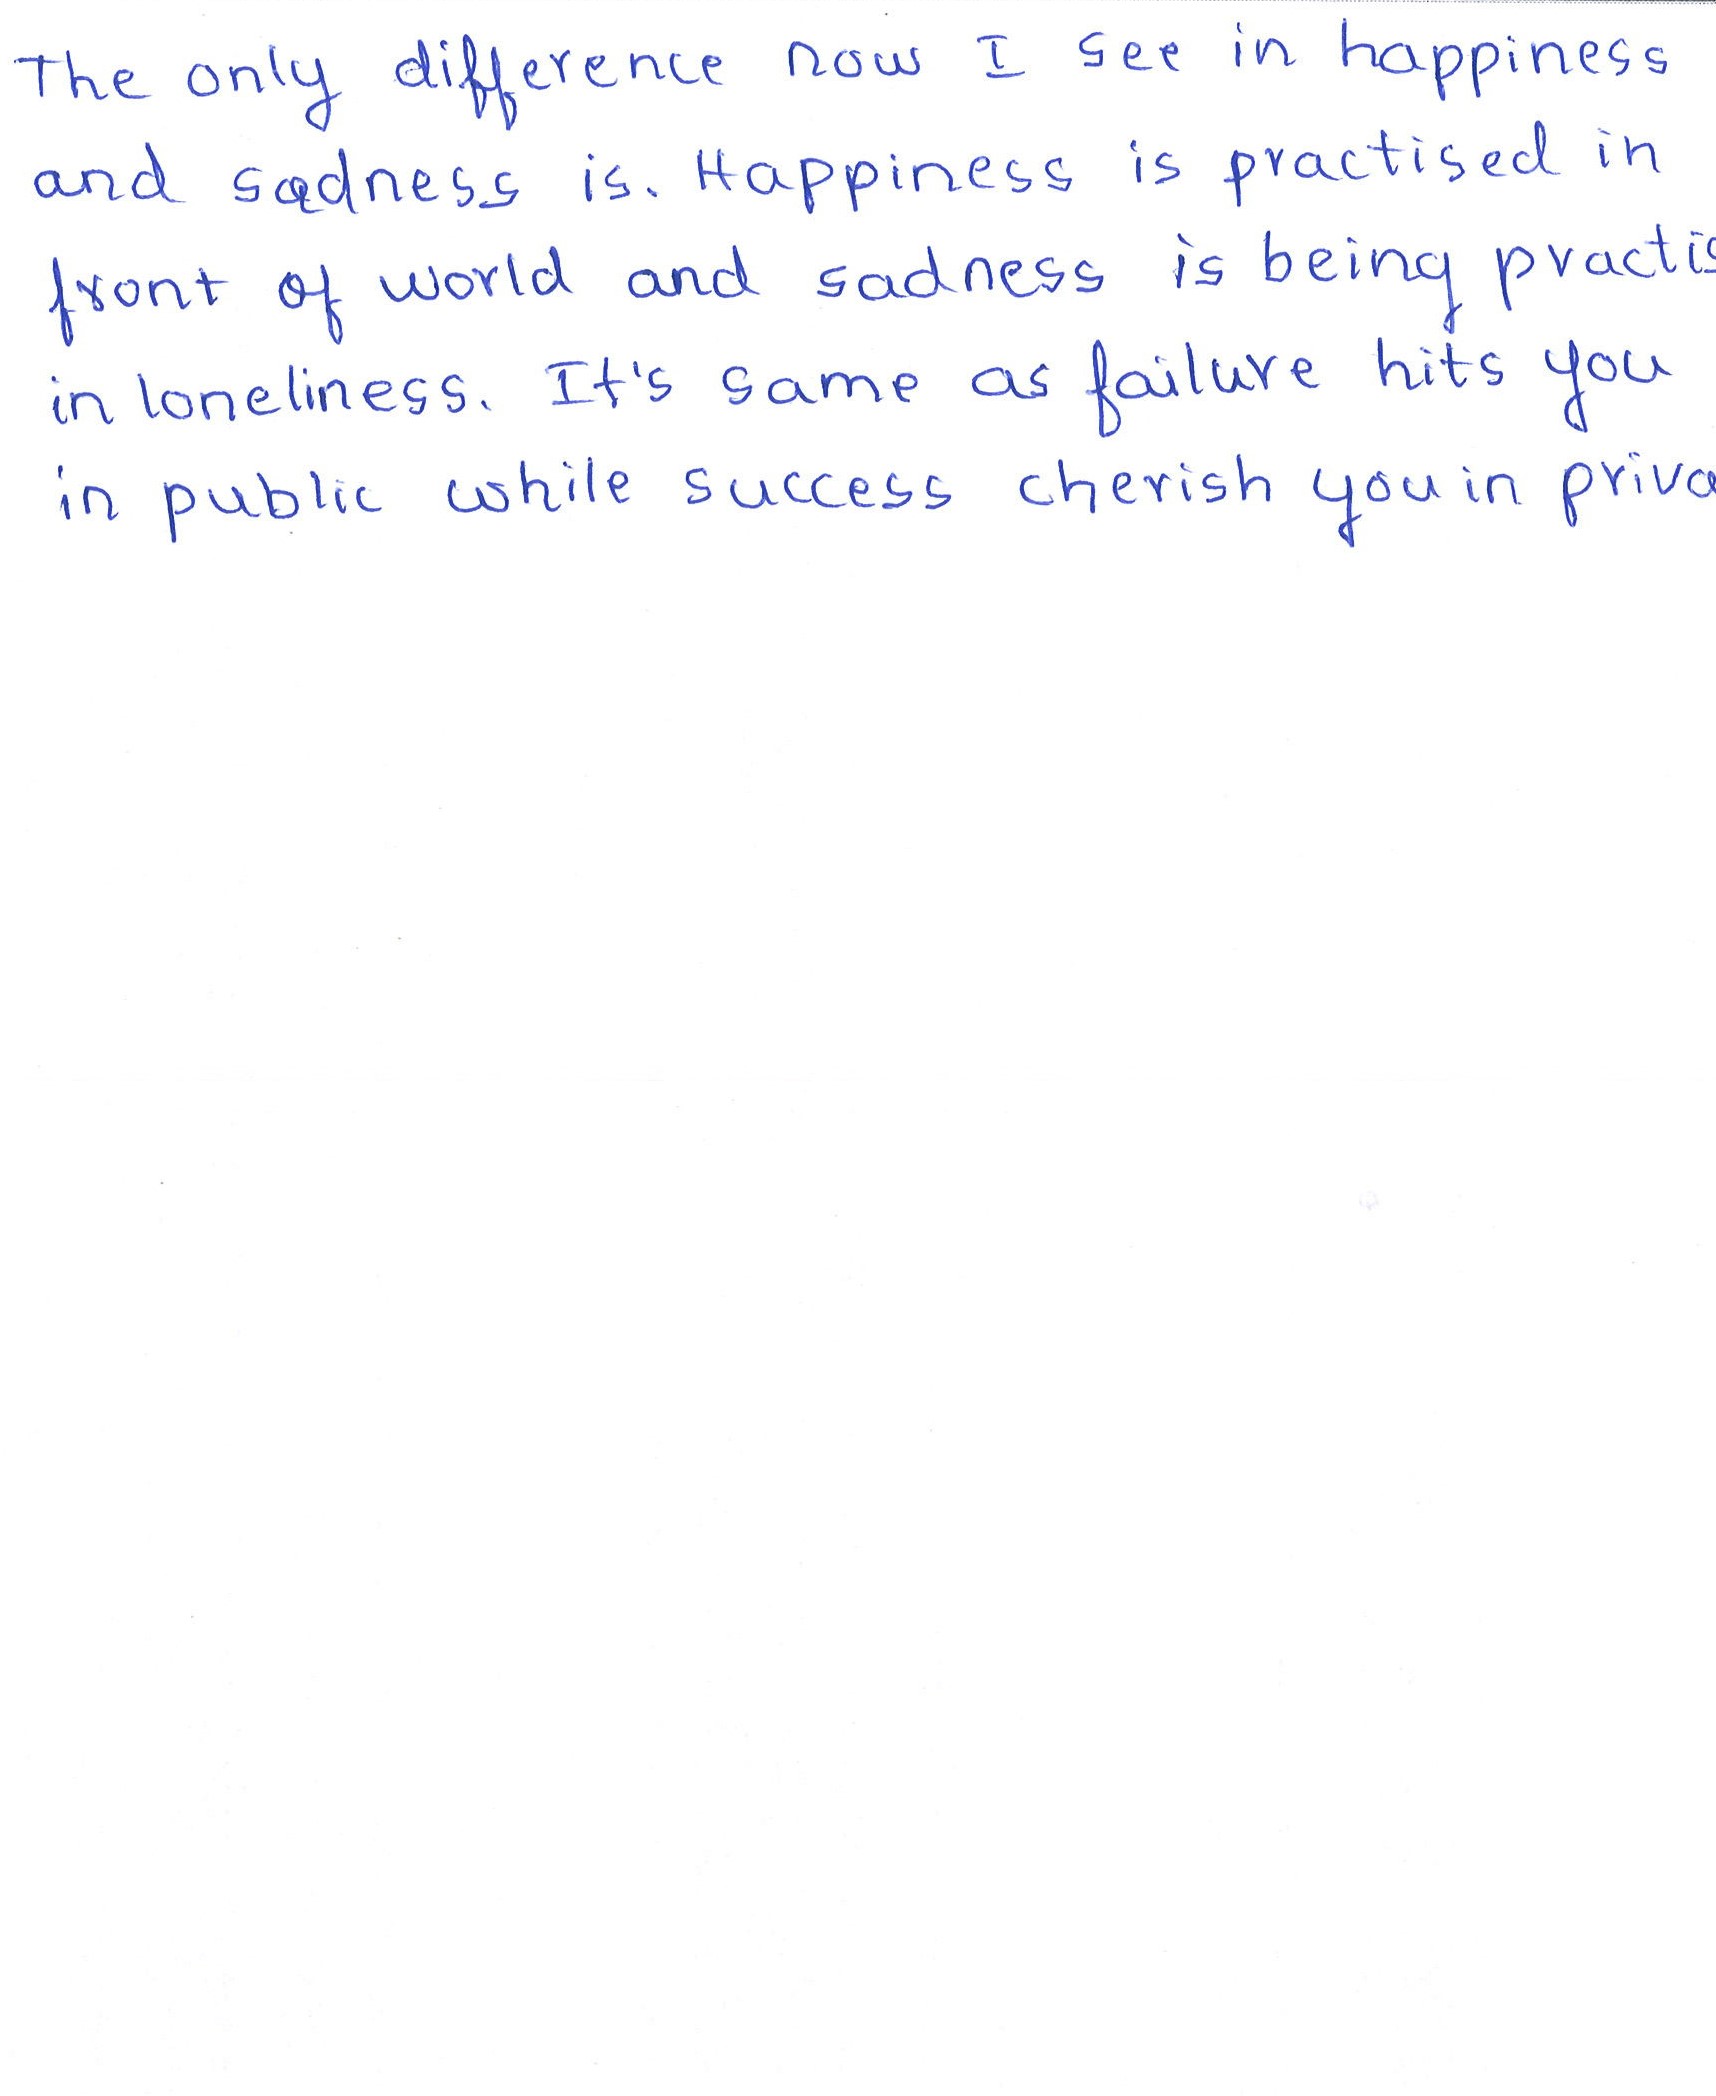 The only difference now I see in happiness
and sadness is. Happiness is practised in
front of world and sadness is being practis
in loneliness. It's same as failure hits you
in public while success cherish you in priva